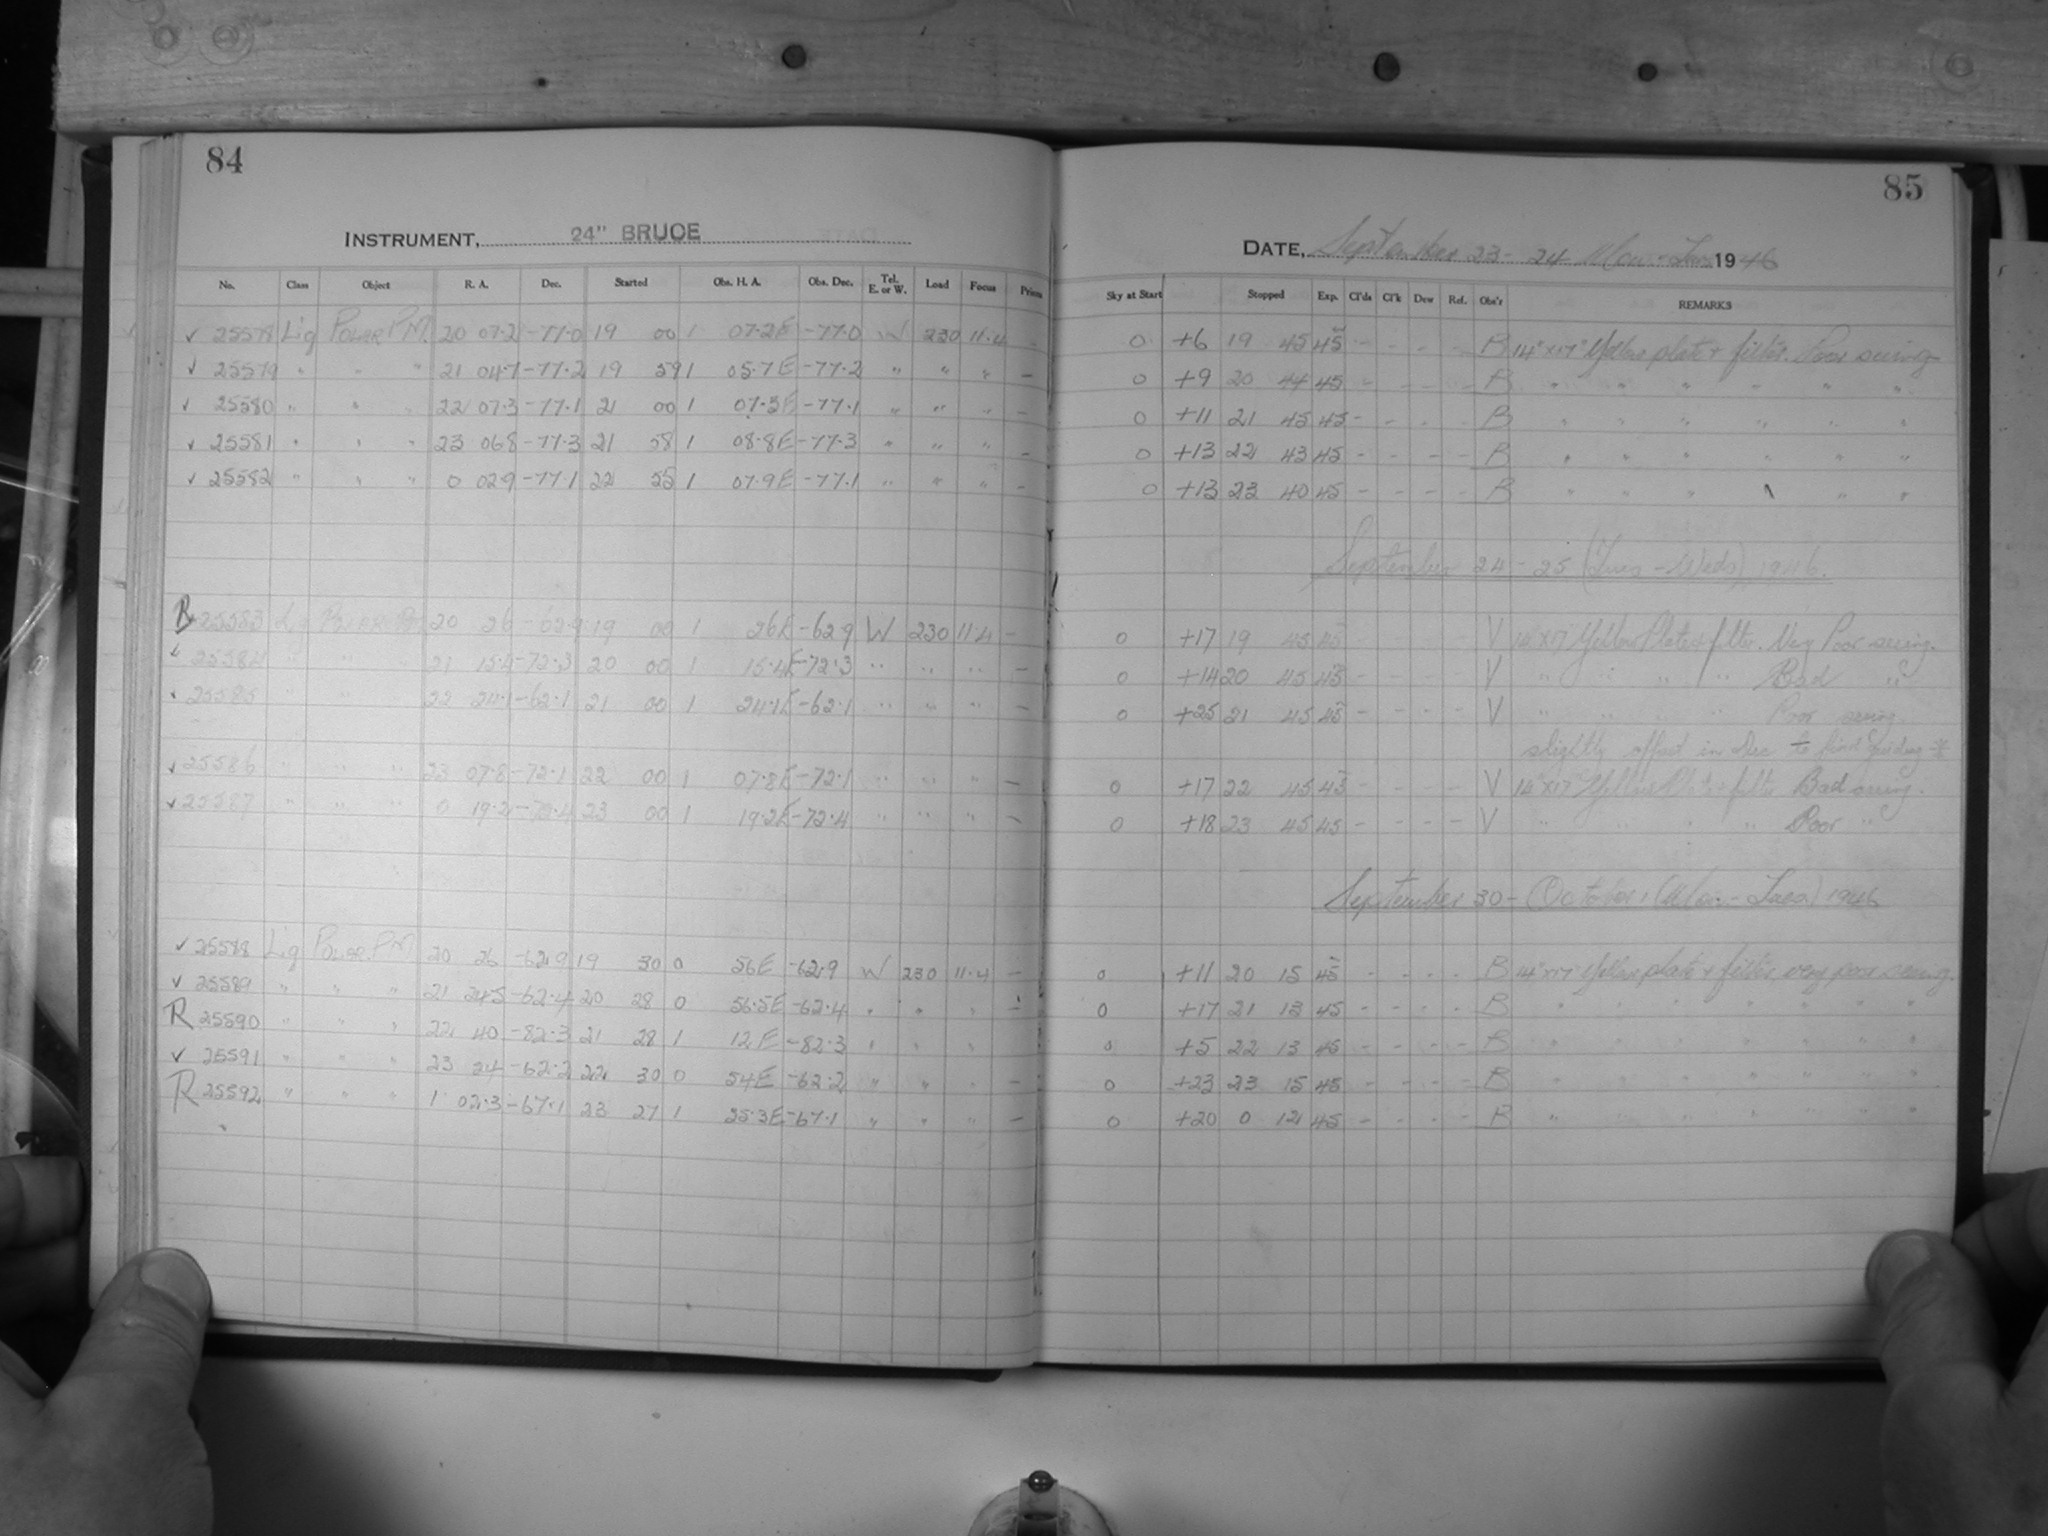 84
INSTRUMENT, 24" BRUCE
No. Class Object R. A. Dec. Started Obs. H. A. Obs. Dec. Tel. E. or W. Load Focus Prism
✓ 25578 Liq POLAR P.M. 20 07.2 -77.0 19 00 1 07.2E -77.0 W 230 11.4 -
✓ 25579 " " " 21 04.7 -77.2 19 59 1 05.7E -77.2 " " " -
✓ 25580 " " " 22 07.3 -77.1 21 00 1 07.3E -77.1 " " " -
✓ 25581 " " " 23 06.8 -77.3 21 58 1 08.8E -77.3 " " " -
✓ 25582 " " " 0 02.9 -77.1 22 55 1 07.9E -77.1 " " " -
R 25583 L POLAR 20 26 -62.9 19 00 1 26E -62.9 W 230 11.4 -
✓ 25584 " " " 21 15.4 -72.3 20 00 1 15.4E -72.3 " " " -
✓ 25585 " " " 22 24.1 -62.1 21 00 1 24.1E -62.1 " " " -
✓ 25586 " " " 23 07.8 -72.1 22 00 1 07.8E -72.1 " " " -
✓ 25587 " " " 0 19.2 -72.4 23 00 1 19.2E -72.4 " " " -
✓ 25588 Liq POLAR PM 20 26 -62.9 19 30 0 56E -62.9 W 230 11.4 -
✓ 25589 " " " 21 24.5 -62.4 20 28 0 56.5E -62.4 " " " -
R 25590 " " " 22 40 -82.3 21 28 1 12E -82.3 " " "
✓ 25591 " " " 23 24 -62.2 22 30 0 54E -62.2 " " " -
R 25592 " " " 1 02.3 -67.1 23 27 1 25.3E -67.1 " " " -
85
DATE, September 23 - 24 Mon - Tues 1946
Sky at Start Stopped Exp. Cl'ds Cl'k Dew Ref. Obs'r REMARKS
0 +6 19 45 45 - - - - B 14"x17" Yellow plate + filter. Poor seeing
0 +9 20 44 45 - - - - B " " " " " "
0 +11 21 45 45 - - - - B " " " " " "
0 +13 22 43 45 - - - - B " " " " " "
0 +13 23 40 45 - - - - B " " " " " "
September 24 - 25 (Tues - Weds), 1946.
0 +17 19 45 45 - - - - V 14"x17" Yellow Plate + filter. Very Poor seeing.
0 +14 20 45 45 - - - - V " " " " Bad "
0 +25 21 45 45 - - - - V " " " " Poor seeing
slightly offset in Dec to find Guiding *
0 +17 22 45 45 - - - - V 14"x17" Yellow Plate + filter Bad seeing.
0 +18 23 45 45 - - - - V " " " " Poor "
September 30 - October 1 (Mon - Tues) 1946
0 +11 20 15 45 - - - - B 14"x17" Yellow plate + filter, very poor seeing.
0 +17 21 13 45 - - - - B " " " " " " "
0 +5 22 13 45 - - - - B " " " " " " "
0 +23 23 15 45 - - - - B " " " " " " "
0 +20 0 12 45 - - - - B " " " " " " "